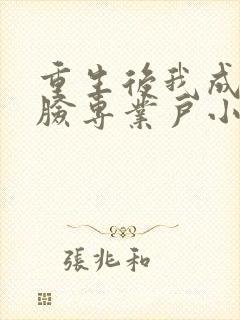 重生後我成
臉專業戶小
張兆和